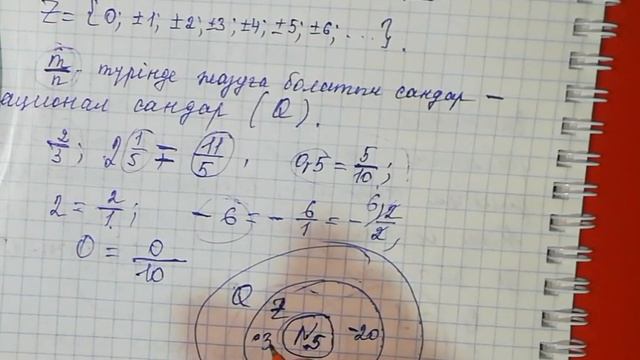 Z = {0; ±1; ±2; ±3; ±4; ±5; ±6; ...}.
m/n түрінде жазуға болатын сандар –
ационал сандар (Q).
2/3; 2 1/5 = 11/5, 0,5 = 5/10;
2 = 2/1; -6 = -6/1 = -
0 = 0/10
Q
Z
N 5 -20